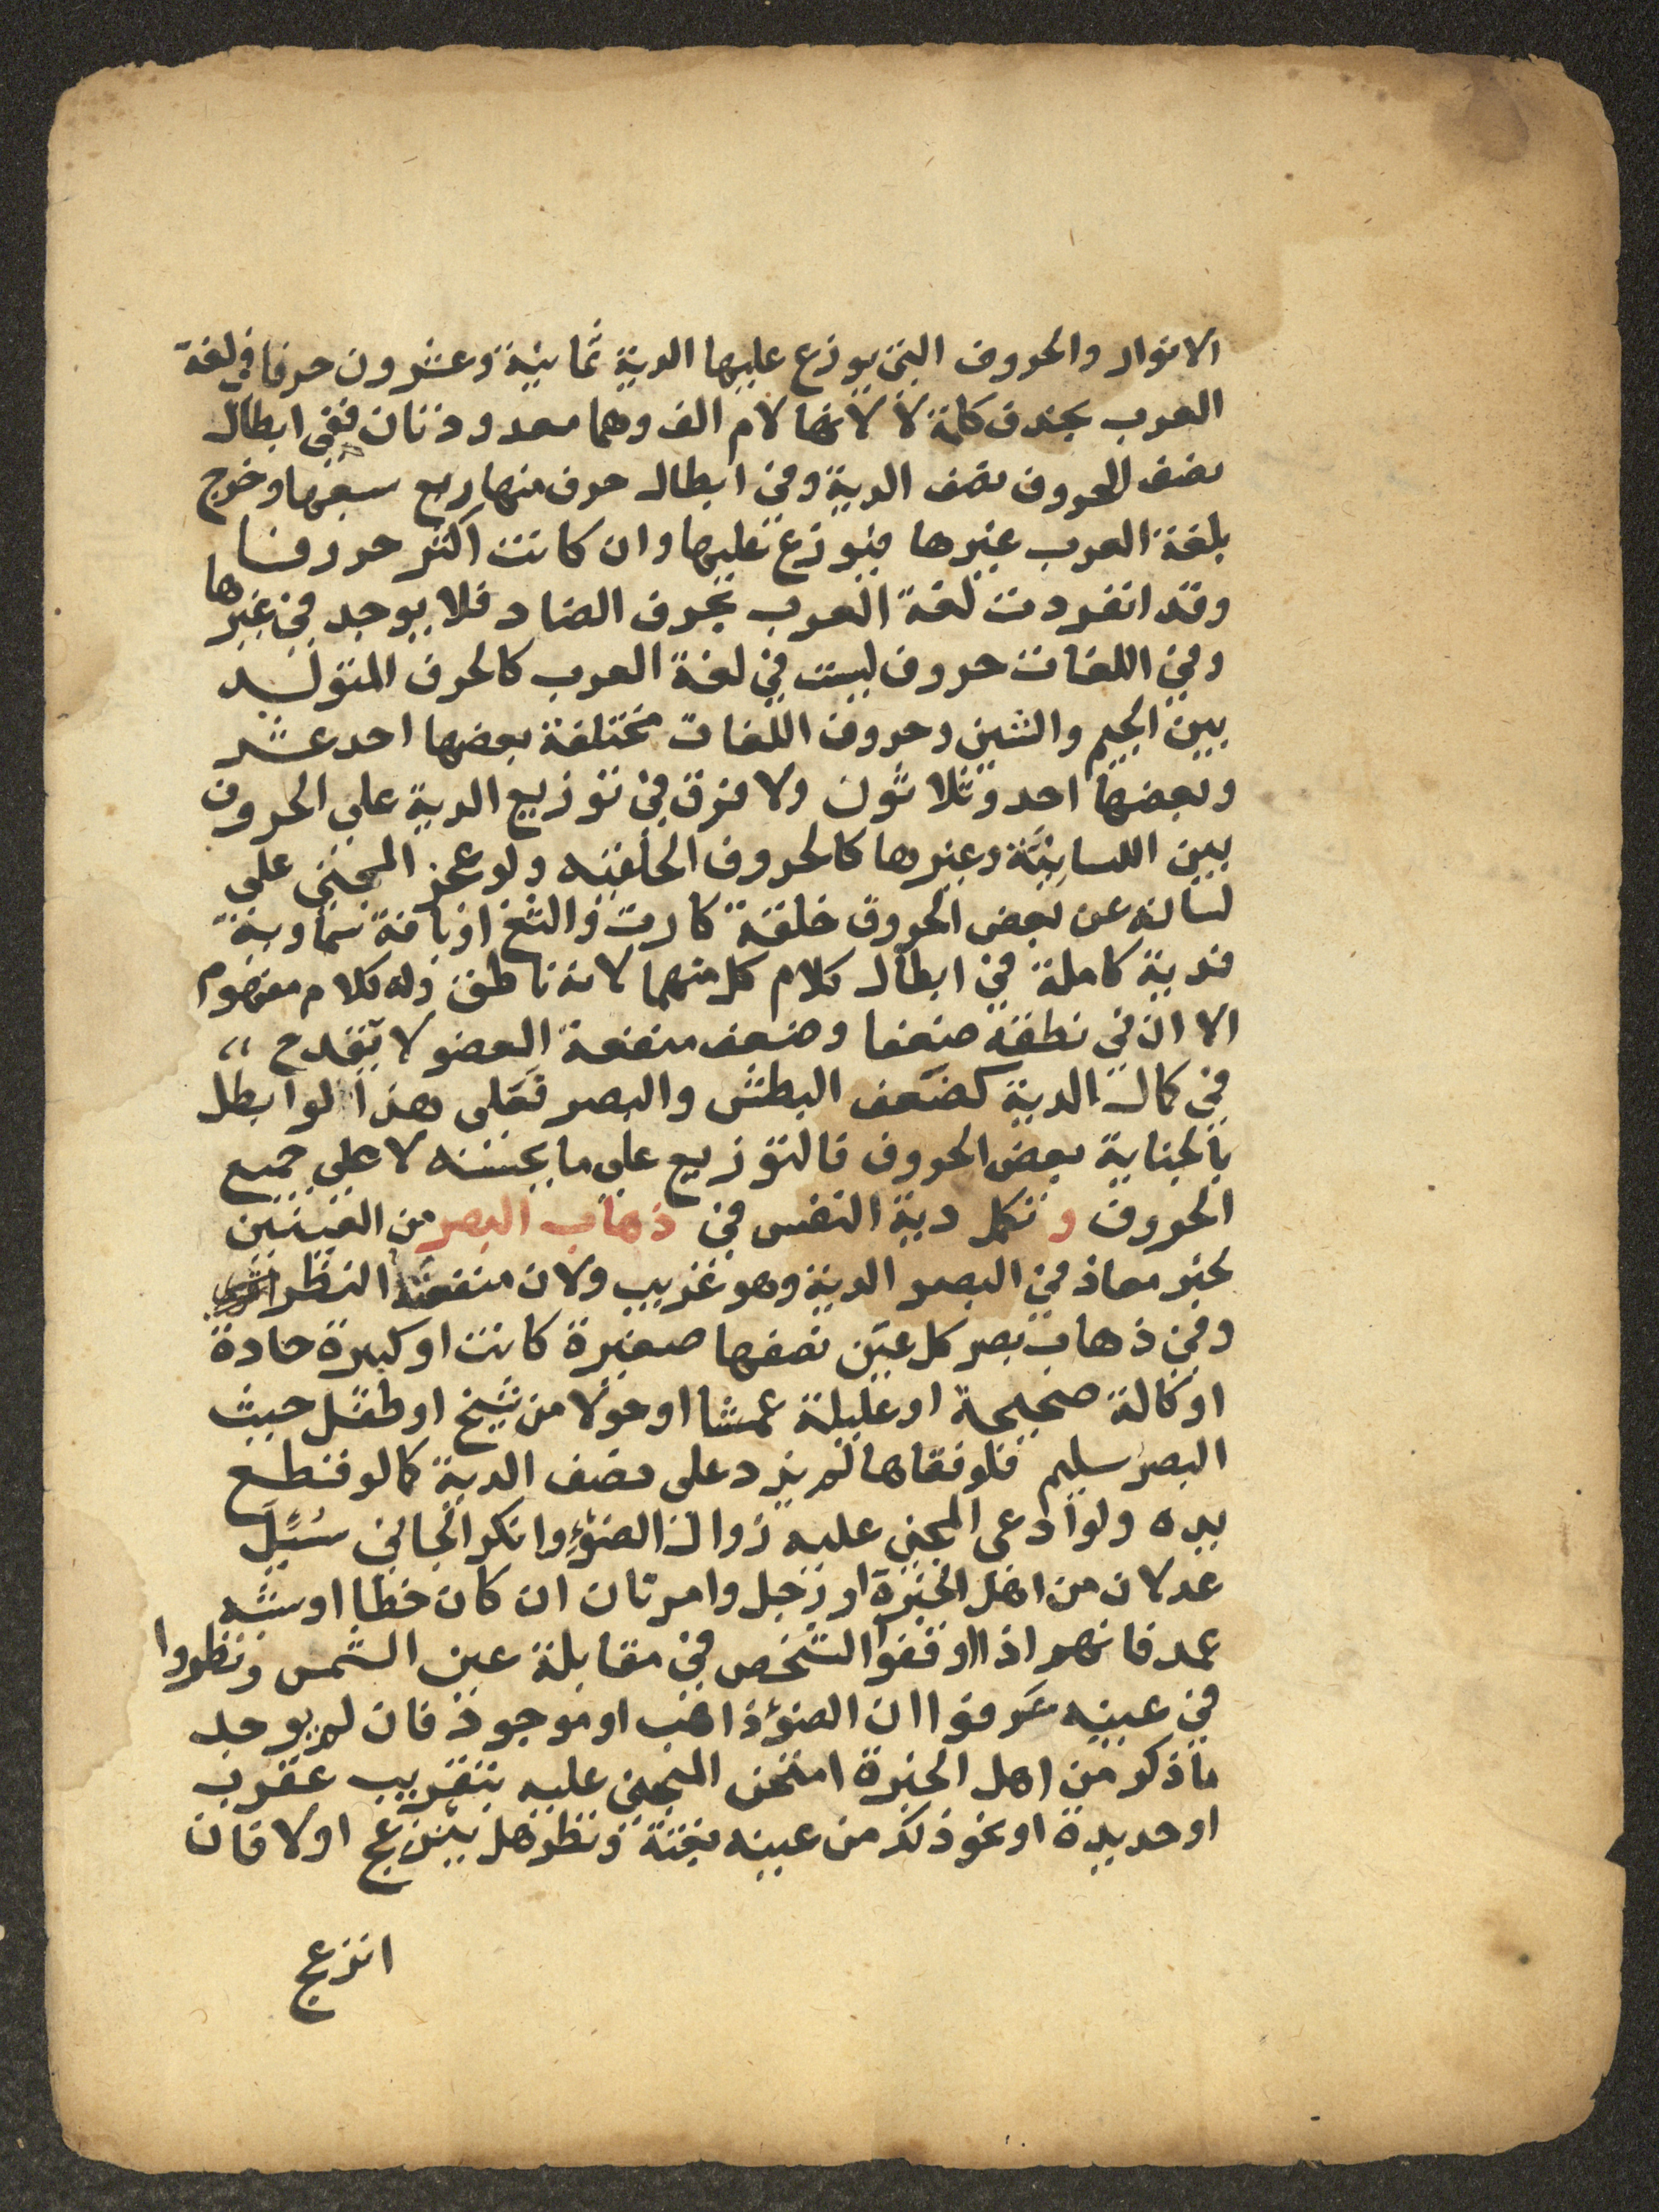 الانوار والحروف التي يوزع عليها الدية ثمانية وعشرون حرفا في لغة
العرب بحذف كلمة لا لانها لام الف وهما معدودتان ففي ابطال
نصف الحروف نصف الدية وفي ابطال حرف منها ربع سبعها وخرج
بلغة العرب غيرها فيوزع عليها وان كانت اكثر حروفا
وقد انفردت لغة العرب بحرف الضاد فلا يوجد في غيرها
وفي اللغات حروف ليست في لغة العرب كالحرف المتولد
بين الجيم والشين وحروف اللغات مختلفة بعضها احد عشر
وبعضها احد وثلاثون ولا فرق في توزيع الدية على الحروف
بين اللسانيَّة وغيرها كالحروف الحلقيه ولو عجز المجني على
لسانه عن بعض الحروف خلقة كارت والثغ او بافة سماوية
فدية كاملة في ابطال كلام كل منهما لانه ناطق وله كلام مفهوم
الا ان في نطقه ضعفا وضعف منفعة العضو لا يقدح ،،
في كمال الدية كضعف البطش والبصر فعلى هذا لو ابطل
بالجناية بعض الحروف فالتوزيع على ما يحسنه لا على جميع
الحروف و تكمل دية النفس في ذهاب البصر من العينين
لخبر معاذ في البصر الدية وهو غريب ولان منفعته النظر
وفي ذهاب بصر كل عين نصفها صغيرة كانت او كبيرة حادة
او كالة صحيحة او عليلة عمشا او حولا من شيخ او طفل حيث
البصر سليم فلو فقاها لم يزد على نصف الدية كما لو قطع
يده ولو ادعى المجني عليه زوال الضؤ وانكر الجاني سُيِلَ
عدلان من اهل الخبرة او رجل وامرتان ان كان خطا او شبه
عمد فانهم اذا اوقفوا الشخص في مقابلة عين الشمس ونظروا
في عينيه عرفوا ان الضؤ ذاهب او موجود فان لم يوجد
ما ذكر من اهل الخبرة امتحن المجني عليه بتقريب عقرب
او حديدة او نحو ذلك من عينيه بغتة ونظر هل ينزعج اولا فان
انزعج